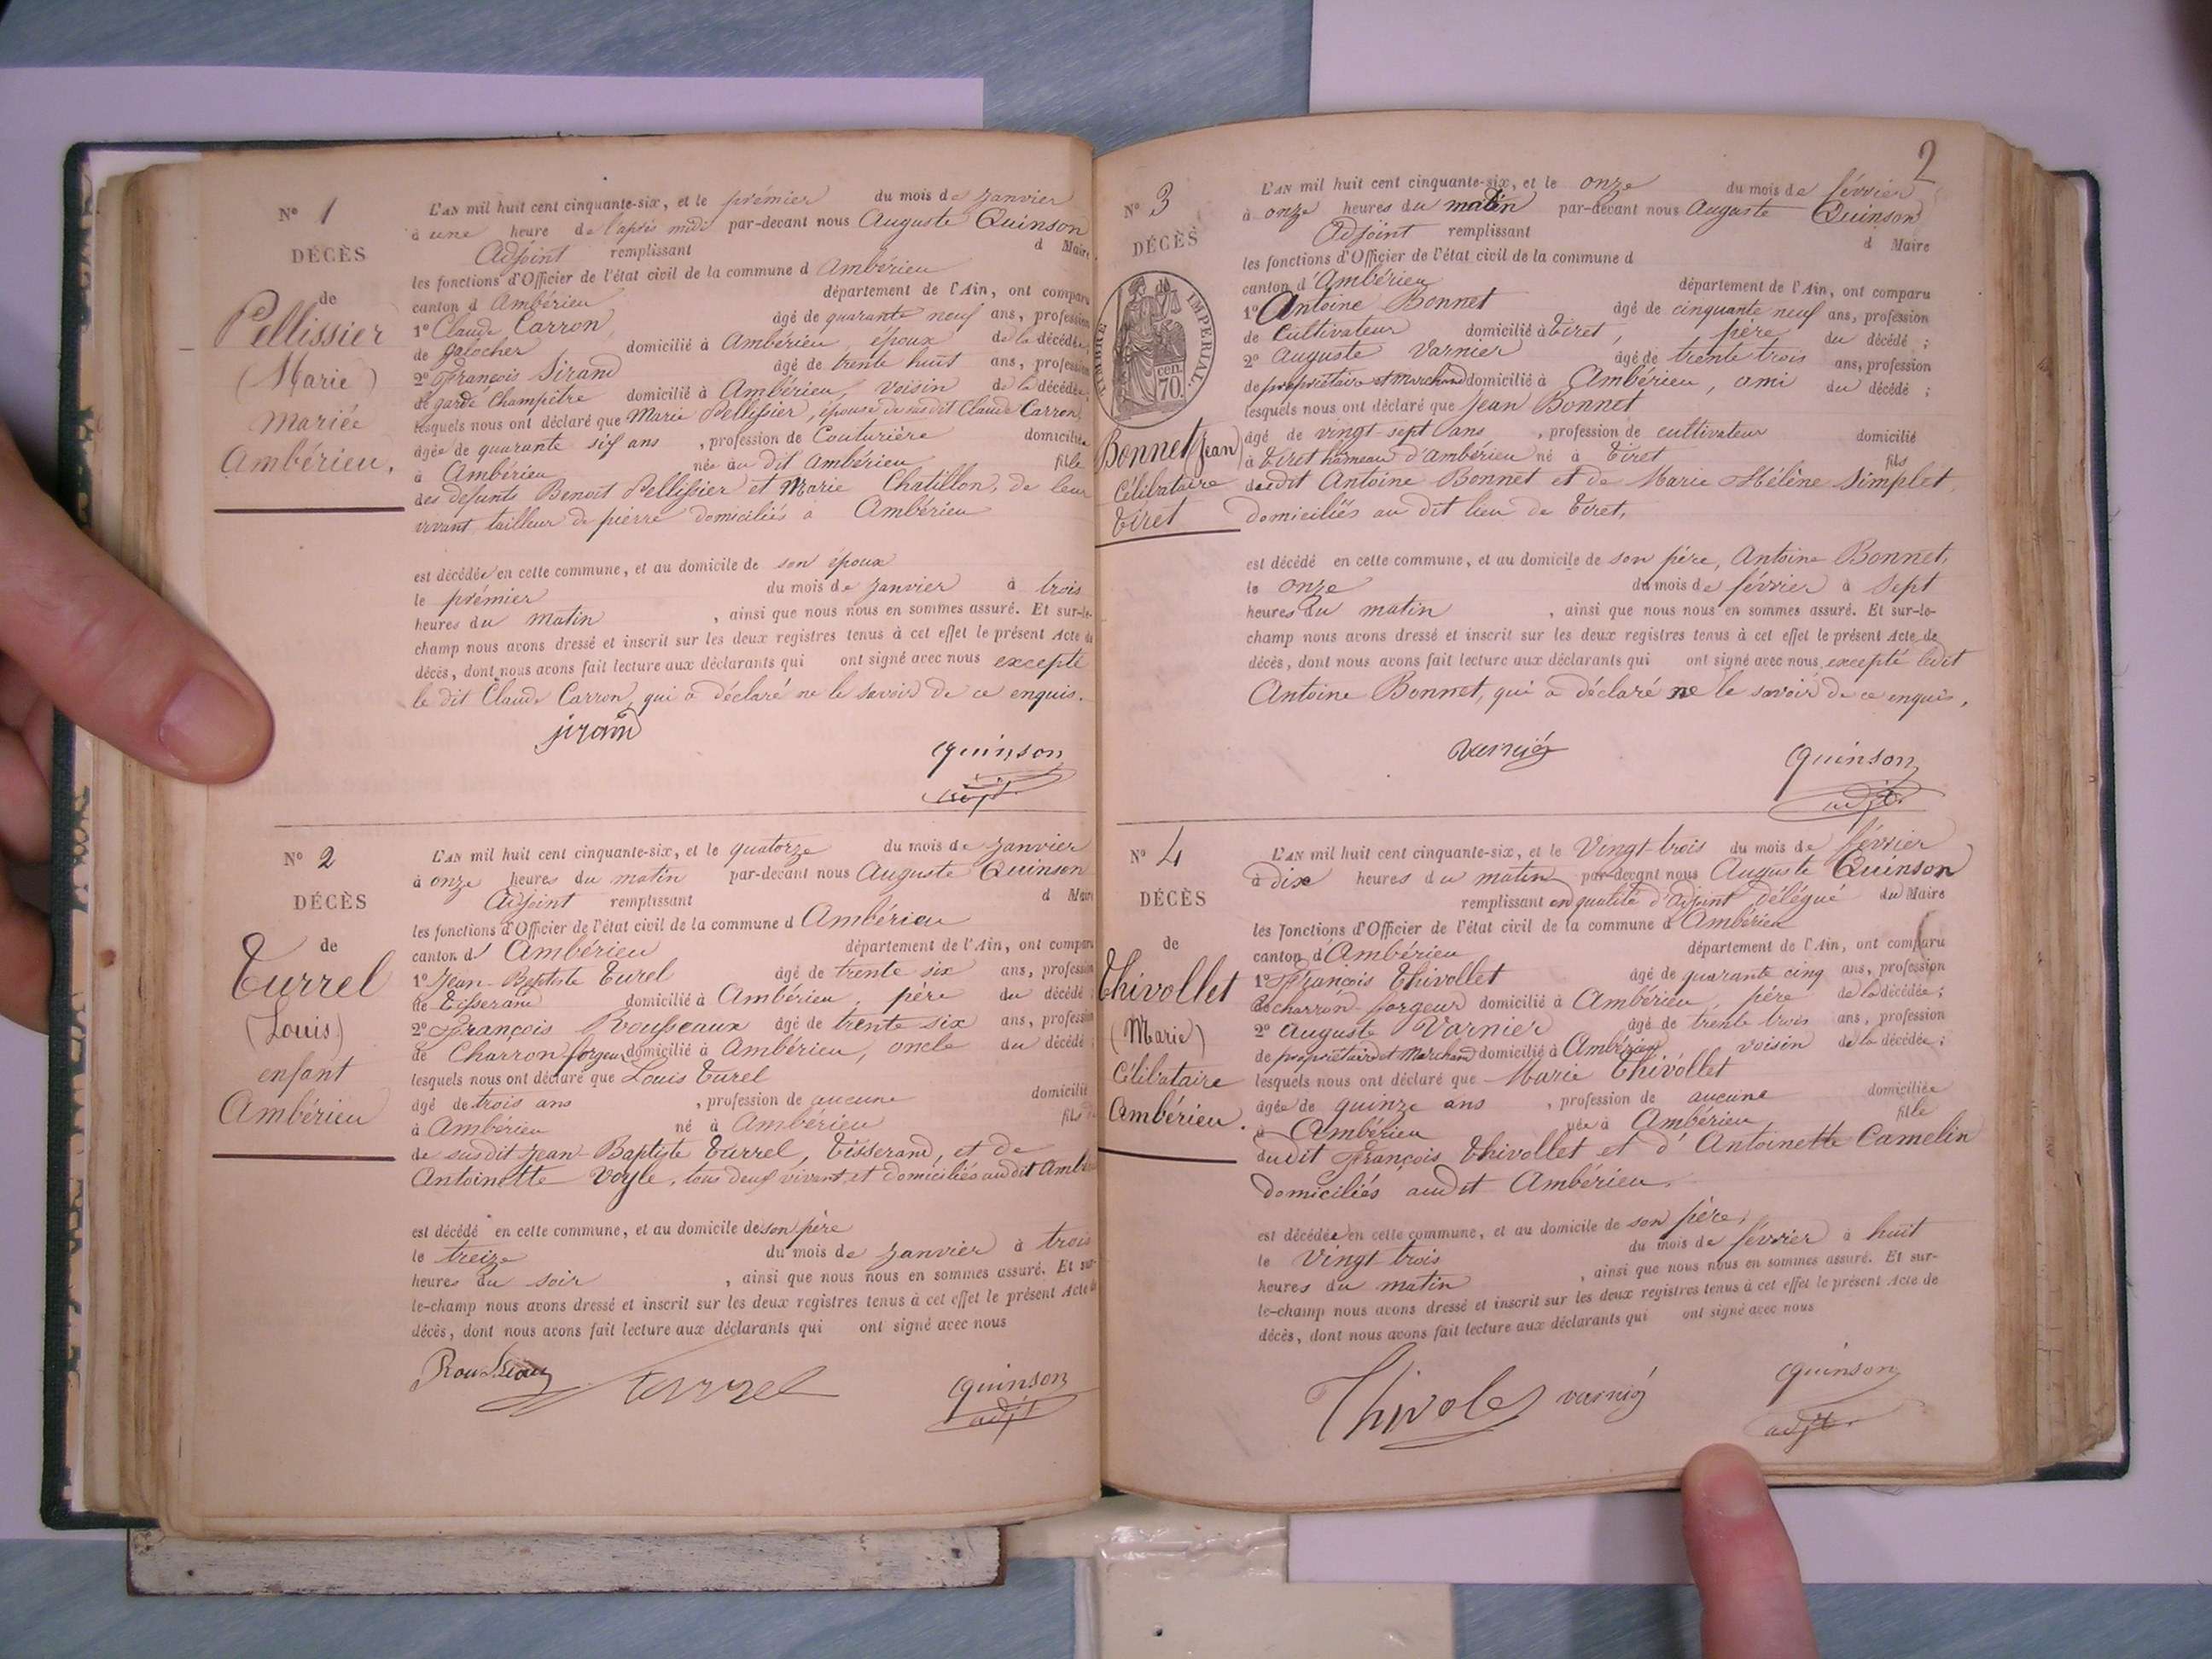 N° 1
DÉCÈS
de
Pellissier
(Marie)
Mariée
Ambérieu.
L'AN mil huit cent cinquante-six, et le prémier du mois de Janvier
à une heure de l'après midi par-devant nous Auguste Quinson
Adjoint remplissant d Maire
les fonctions d'Officier de l'état civil de la commune d Ambérieu
canton d Ambérieu département de l'Ain, ont comparu
1° Claude Carron âgé de quarante neuf ans, profession
de galocher domicilié à Ambérieu, époux de la décédée;
2° François Sirand âgé de trente huit ans, profession
de garde Champêtre domicilié à Ambérieu, voisin de la décédée;
lesquels nous ont déclaré que Marie Pellissier, épouse du susdit Claude Carron,
âgée de quarante six ans , profession de Couturière domiciliée
à Ambérieu née au dit Ambérieu fille
des defunts Benoit Pellissier et Marie Chatillon, de leur
vivant tailleur de pierre domiciliés à Ambérieu
est décédée en cette commune, et au domicile de son époux
le prémier du mois de Janvier à trois
heures du matin , ainsi que nous nous en sommes assuré. Et sur-le-
champ nous avons dressé et inscrit sur les deux registres tenus à cet effet le présent Acte de
décès, dont nous avons fait lecture aux déclarants qui ont signé avec nous excepté
le dit Claude Carron, qui a déclaré ne le savoir de ce enquis.
sirand
quinson
adjt
N° 2
DÉCÈS
de
Turrel
(Louis)
enfant
Ambérieu
L'AN mil huit cent cinquante-six, et le quatorze du mois de Janvier
à onze heures du matin par-devant nous Auguste Quinson
Adjoint remplissant d Maire
les fonctions d'Officier de l'état civil de la commune d Ambérieu
canton d' Ambérieu département de l'Ain, ont comparu
1° Jean-Baptiste Turel âgé de trente six ans, profession
de Tisserand domicilié à Ambérieu, père du décédé;
2° François Rousseaux âgé de trente six ans, profession
de Charron-forgeur domicilié à Ambérieu, oncle du décédé;
lesquels nous ont déclaré que Louis Turel
âgé de trois ans , profession de aucune domicilié
à Ambérieu né à Ambérieu fils
de susdit Jean-Baptiste Turrel, Tisserand, et de
Antoinette Voyle, tous deux vivant et domiciliés audit Ambérieu
est décédé en cette commune, et au domicile de son père
le treize du mois de Janvier à trois
heures du soir , ainsi que nous nous en sommes assuré. Et sur-
le-champ nous avons dressé et inscrit sur les deux registres tenus à cet effet le présent Acte de
décès, dont nous avons fait lecture aux déclarants qui ont signé avec nous
Rousseaux turrel quinson
adjt
2
N° 3
DÉCÈS
de
TIMBRE IMPERIAL.
cen.
70.
Bonnet (Jean)
Célibataire
Tiret
L'AN mil huit cent cinquante-six, et le onze du mois de février
à onze heures du matin par-devant nous Auguste Quinson
Adjoint remplissant d Maire
les fonctions d'Officier de l'état civil de la commune d
canton d'Ambérieu département de l'Ain, ont comparu
1° Antoine Bonnet âgé de cinquante neuf ans, profession
de Cultivateur domicilié à Tiret, père du décédé;
2° Auguste Varnier âgé de trente trois ans, profession
de propriétaire et Marchand domicilié à Ambérieu, ami du décédé;
lesquels nous ont déclaré que Jean Bonnet
âgé de vingt-sept ans , profession de cultivateur domicilié
à Tiret hameau d'Ambérieu né à Tiret fils
dudit Antoine Bonnet et de Marie Hélène Simplet,
domiciliés au dit lieu de Tiret,
est décédé en cette commune, et au domicile de son père, Antoine Bonnet,
le onze du mois de février à sept
heures du matin , ainsi que nous nous en sommes assuré. Et sur-le-
champ nous avons dressé et inscrit sur les deux registres tenus à cet effet le présent Acte de
décès, dont nous avons fait lecture aux déclarants qui ont signé avec nous excepté ledit
Antoine Bonnet, qui a déclaré ne le savoir de ce enquis.
varnier quinson
adjt.
N° 4
DÉCÈS
de
Thivollet
(Marie)
Célibataire
Ambérieu.
L'AN mil huit cent cinquante-six, et le Vingt-trois du mois de février
à dix heures du matin par-devant nous Auguste Quinson
remplissant en qualité d'adjoint délégué du Maire
les fonctions d'Officier de l'état civil de la commune d Ambérieu
canton d'Ambérieu département de l'Ain, ont comparu
1° François Thivollet âgé de quarante cinq ans, profession
de charron-forgeur domicilié à Ambérieu, père de la décédée;
2° Auguste Varnier âgé de trente trois ans, profession
de propriétaire et Marchand domicilié à Ambérieu, voisin de la décédée;
lesquels nous ont déclaré que Marie Thivollet
âgée de quinze ans , profession de aucune domiciliée
à Ambérieu née à Ambérieu fille
dudit François Thivollet et d'Antoinette Camelin
domiciliés audit Ambérieu.
est décédée en cette commune, et au domicile de son père,
le Vingt trois du mois de février à huit
heures du matin , ainsi que nous nous en sommes assuré. Et sur-
le-champ nous avons dressé et inscrit sur les deux registres tenus à cet effet le présent Acte de
décès, dont nous avons fait lecture aux déclarants qui ont signé avec nous
Thivole varnier quinson
adjt.